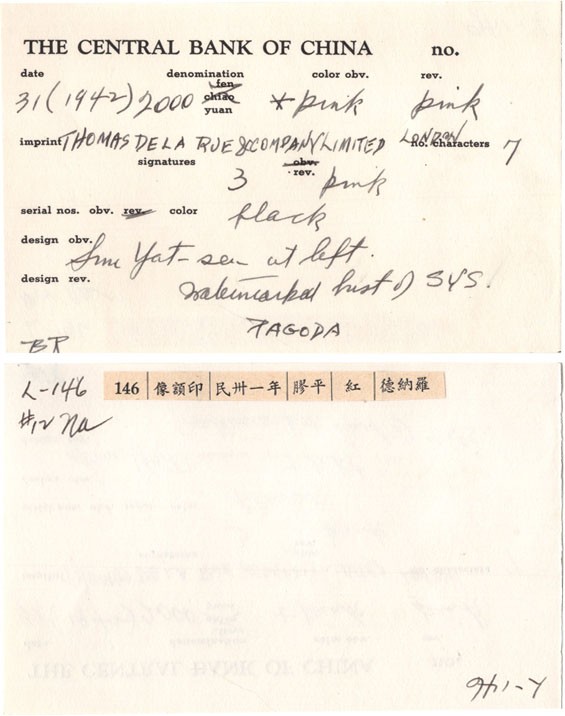 THE CENTRAL BANK OF CHINA no.
date denomination color obv. rev.
fen
31 (1942) 2000 chiao * pink pink
yuan
imprint THOMAS DE LA RUE & COMPANY LIMITED LONDON no. characters 7
signatures obv.
rev.
3 pink
serial nos. obv. rev. color black
design obv. Sun Yat-sen at left.
design rev. watermarked bust of SYS.
PAGODA
L-146 146 像額印 民卅一年 膠平 紅 德納羅
#12 na